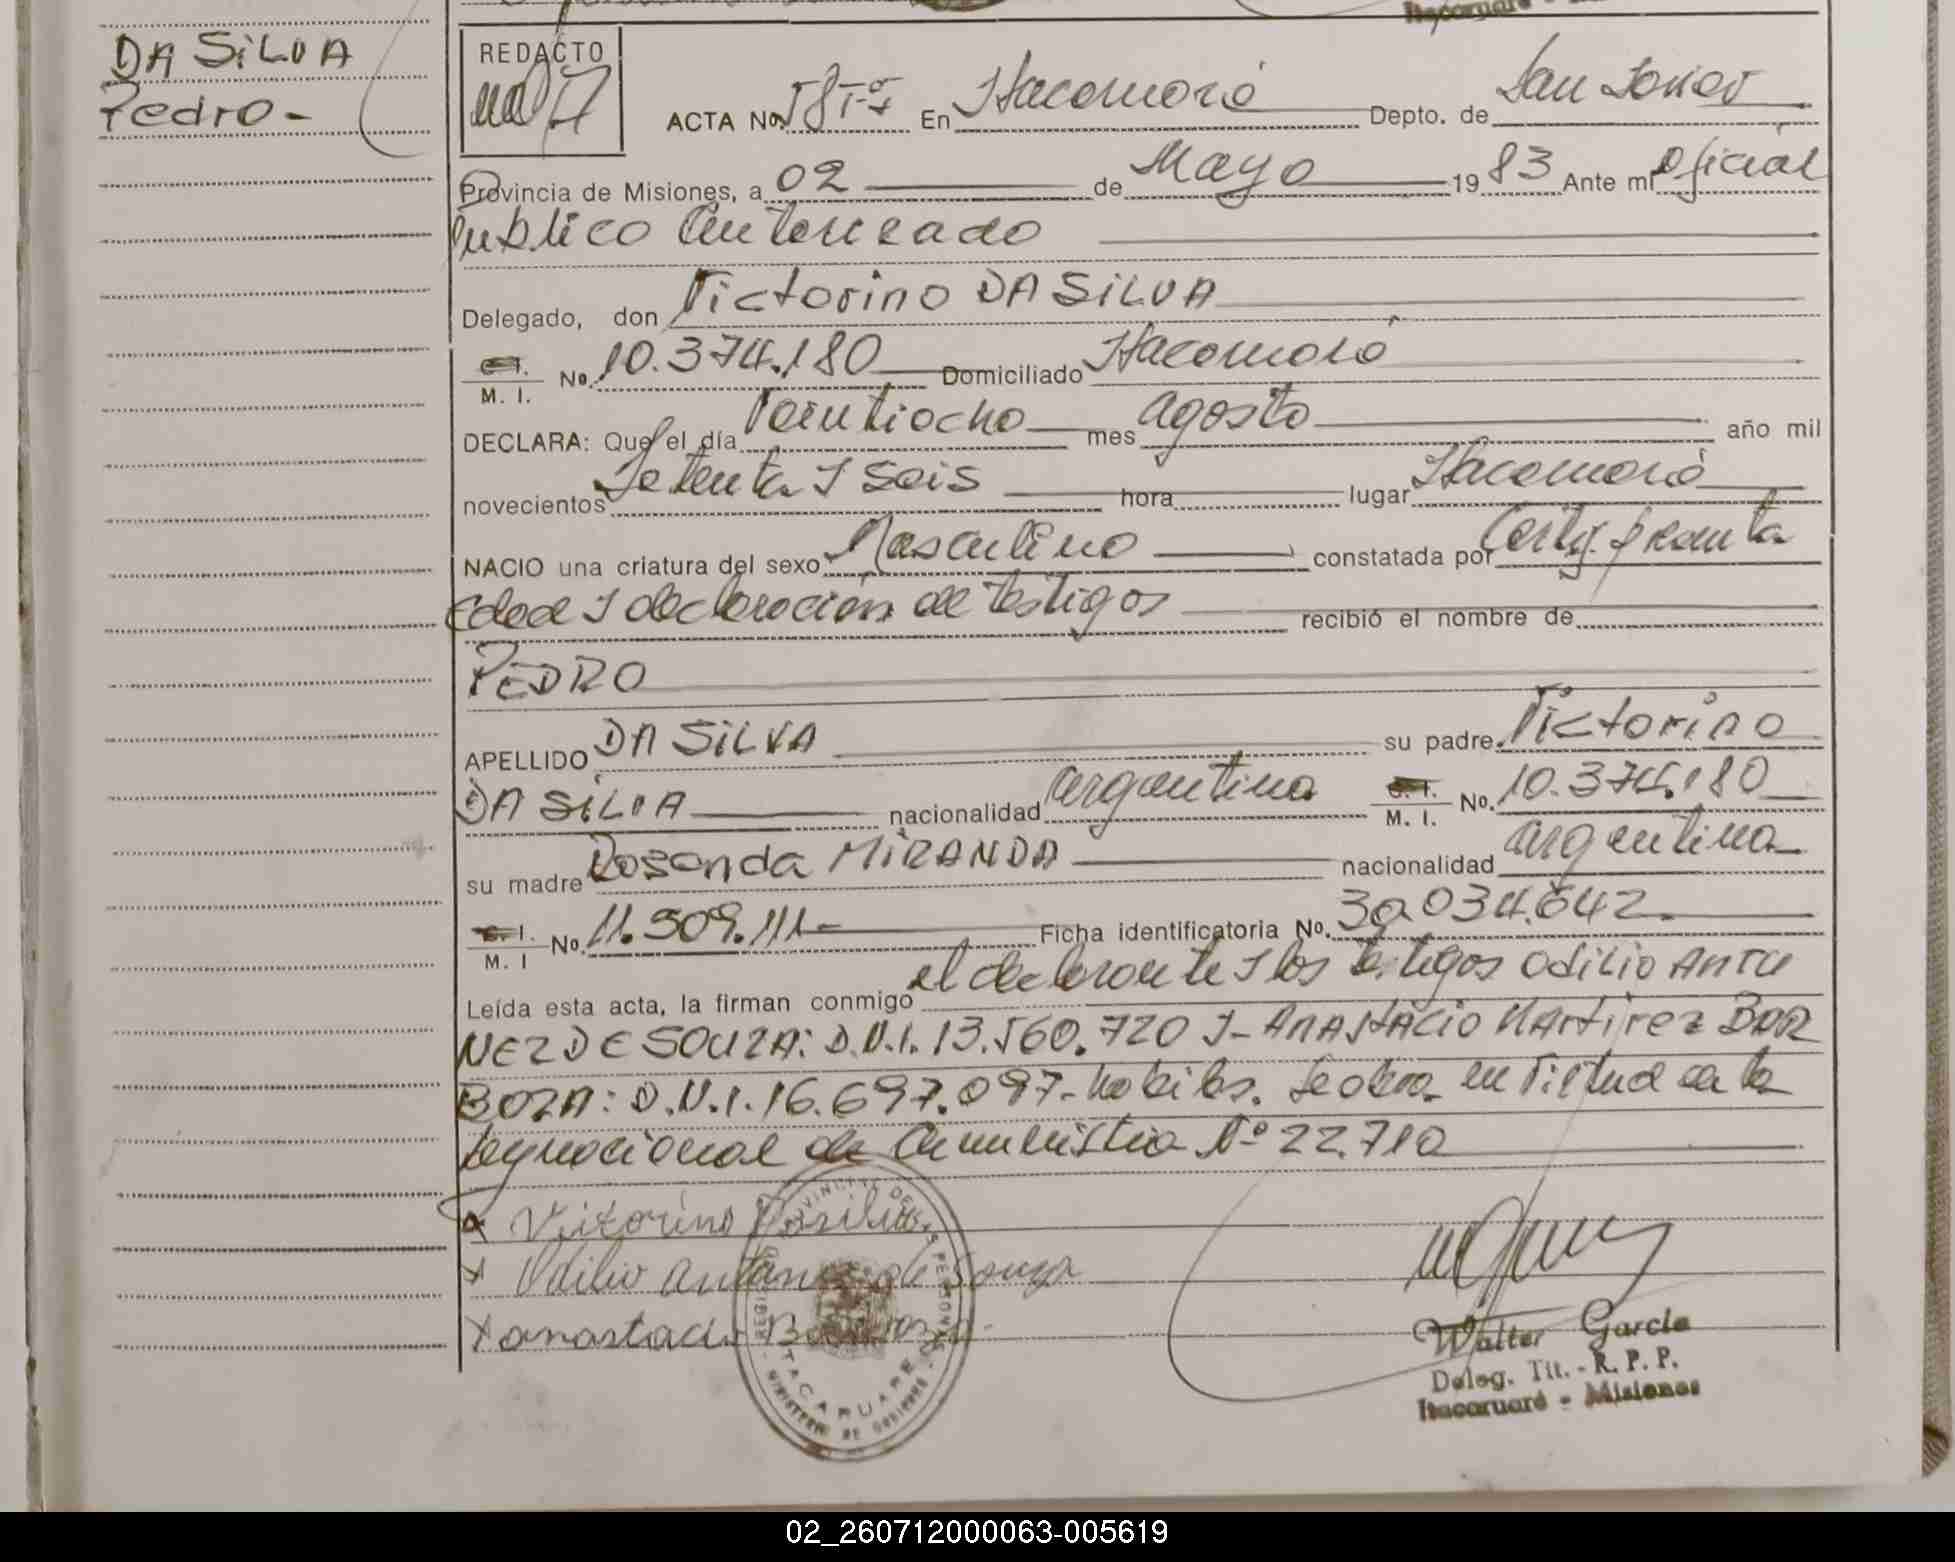 DA SiLVA
Pedro-
REDACTO
ACTA No. En Itacaruaré Depto. de San Javier
Provincia de Misiones, a 02 de Mayo 19 83 Ante mí Oficial
Publico Autorizado
Delegado, don Victorino DA SiLVA
C. I. M. I. No. 10.374.180 Domiciliado Itacaruaré
DECLARA: Que el día Veintiocho mes agosto año mil
novecientos Setenta y seis hora lugar Itacaruaré
NACIO una criatura del sexo Masculino constatada por Certif. presunta
Edad y declaración de testigos recibió el nombre de
PEDRO
APELLIDO DA SiLVA su padre Victorino
DA SiLVA nacionalidad argentina C. I. M. I. No. 10.374.180
su madre Rosanda MIRANDA nacionalidad argentina
C. I. M. I No. 11.509.111- Ficha identificatoria No. 30.034.642.
Leída esta acta, la firman conmigo el declarante y los testigos ODiLiO ANTU
NEZ DE SOUZA: D.N.I. 13.560.720 y- ANAStACiO MArtirez BAR
BOZA: D.N.I. 16.697.097- habiles. Se labra en virtud de la
Ley nacional de Amnistia Nº 22.710
x Vitorino Dasilva
x Odilio antunez de Souza
x anastacio Barboza
PROVINCIAL DE LAS PERSONAS
ITACARUARE
MINISTERIO DE GOBIERNO
Walter García
Deleg. Tit. - R. P. P.
Itacaruaré - Misiones
02_260712000063-005619